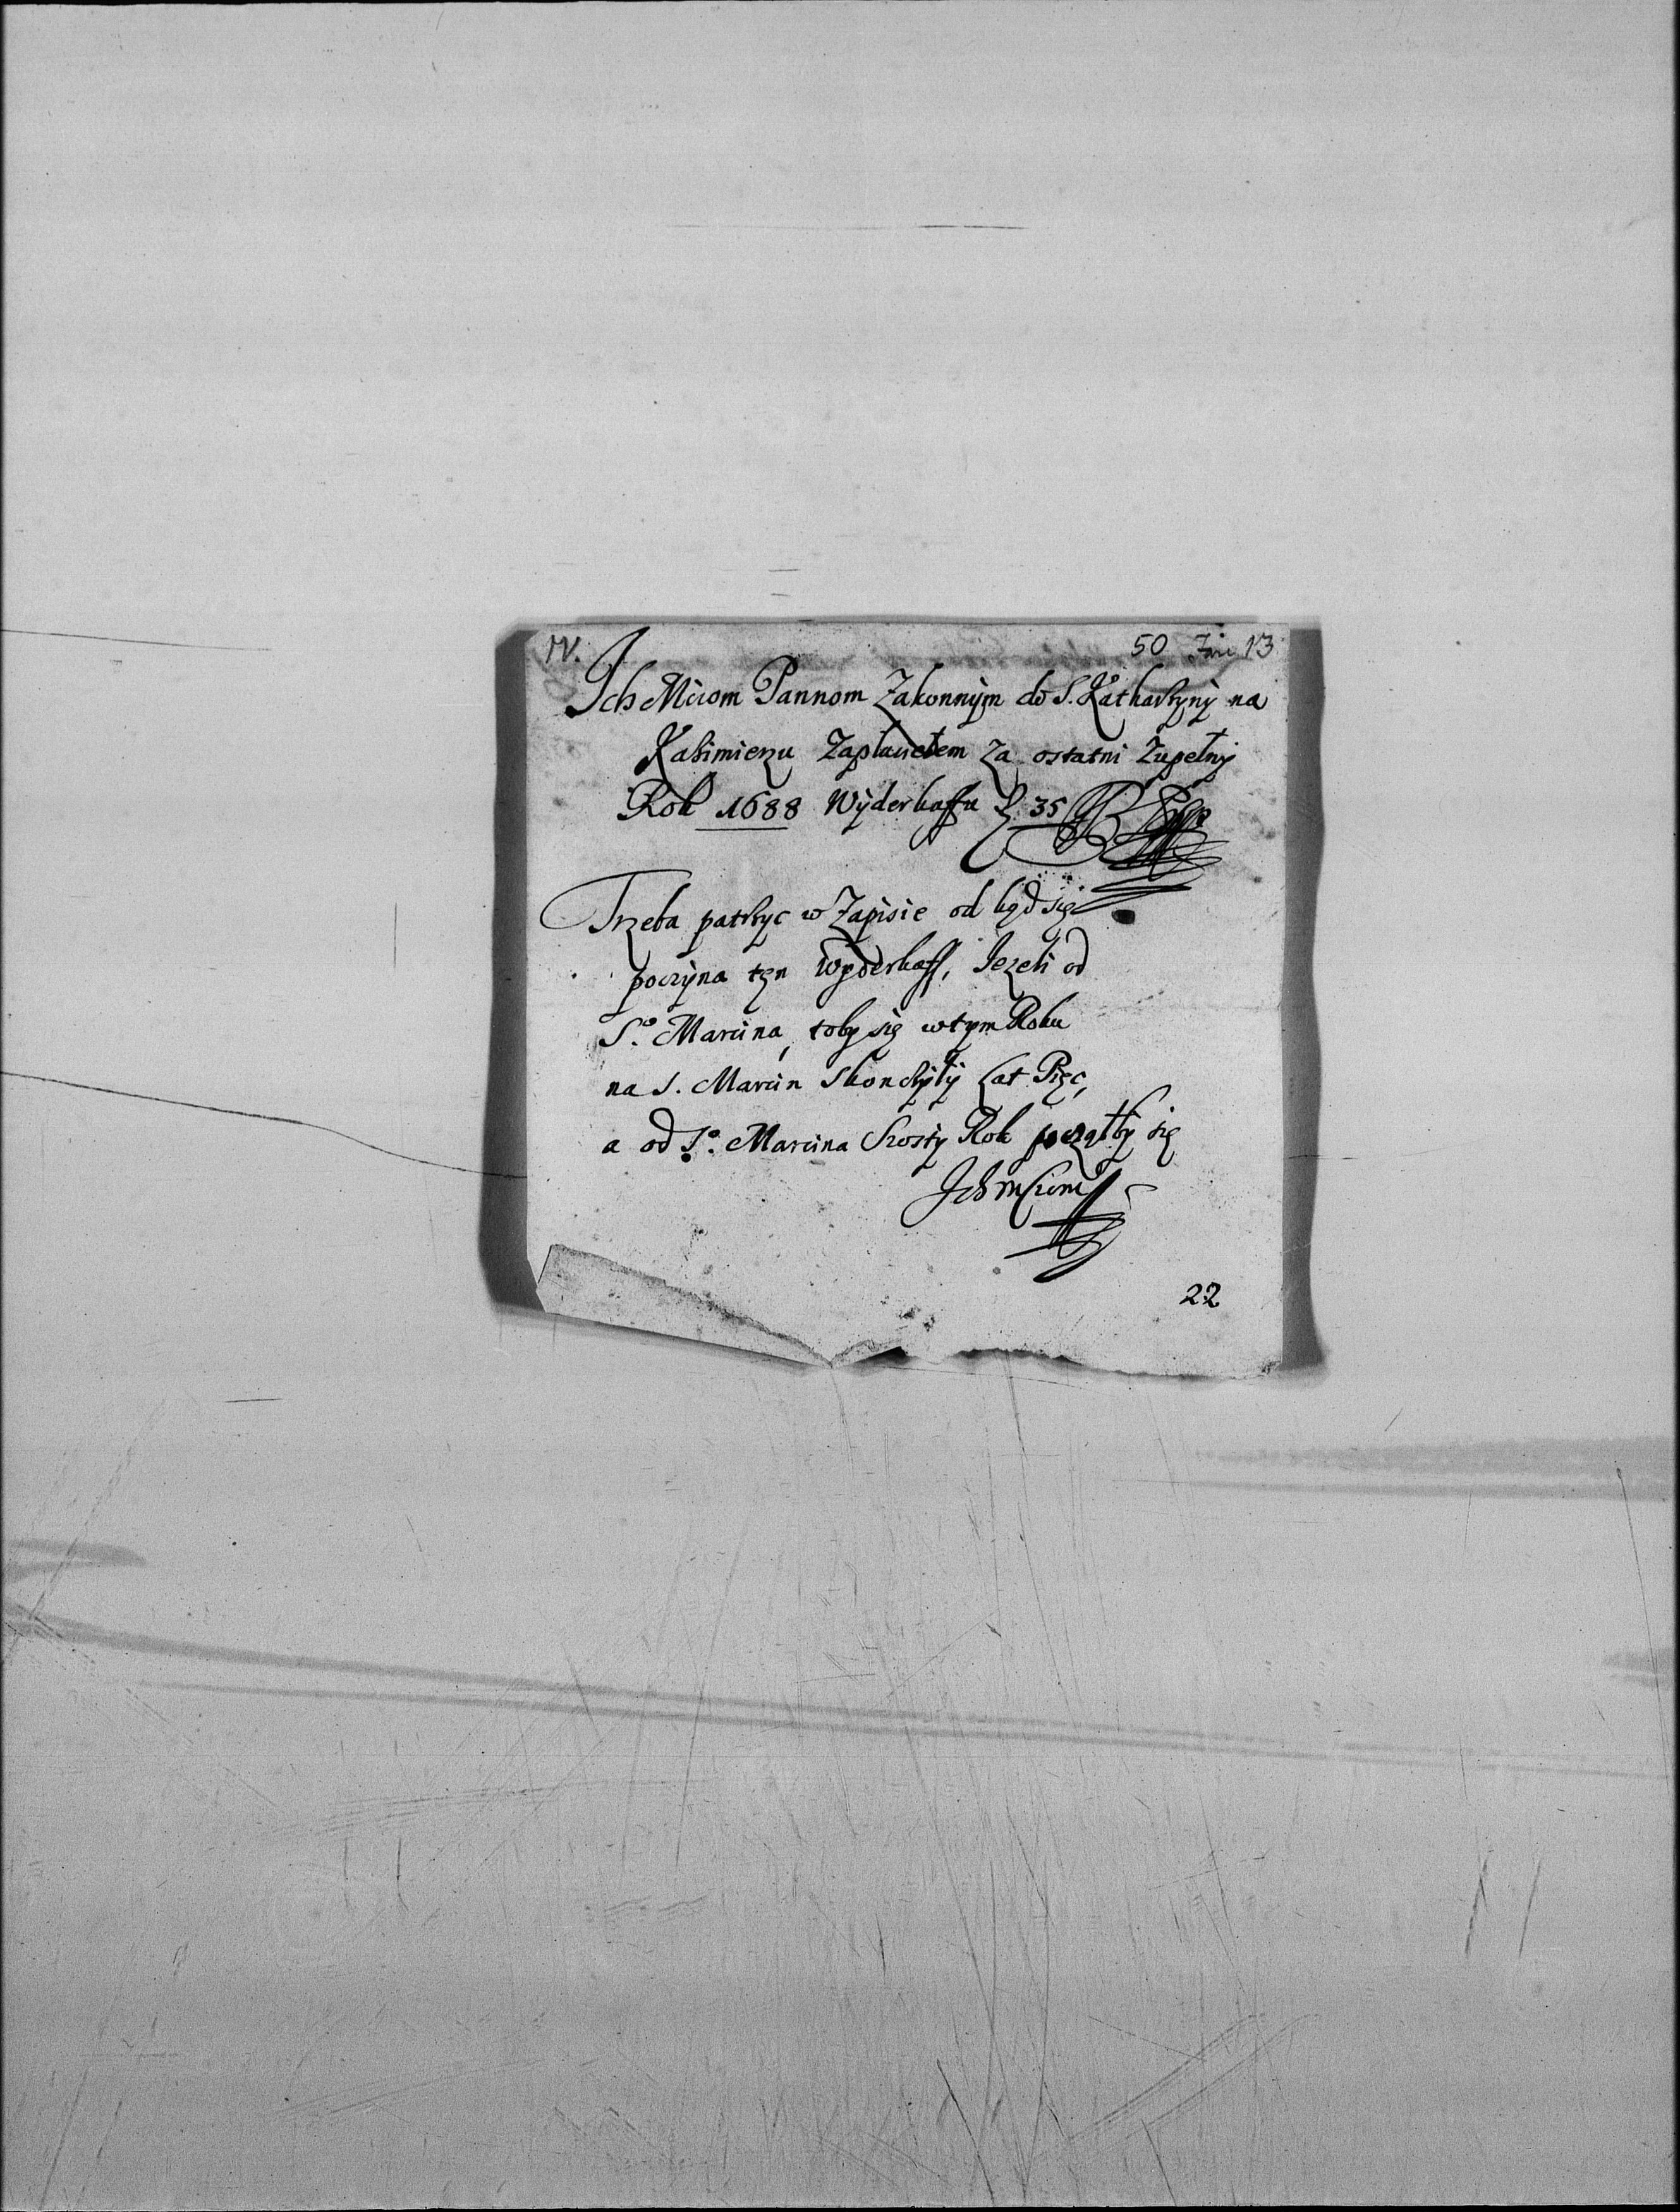 IV. 50 13
Ich Mciom Pannom Zakonnym do S. Katharzyny na
Kazimierzu Zapłaciełem za ostatni Zupełny
Rok 1688 Wyderkaffu 35
Trzeba patrzyc w Zapisie od kąd się
poczyna ten Wyderkaff, Jezeli od
So. Marcina, toby się w tym Roku
na S. Marcin skonczyły Lat Pięc,
a od So. Marcina Szosty Rok począłby się
Ich mciom
22